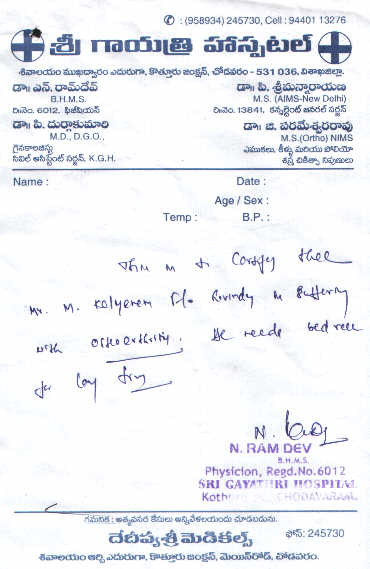 ✆ : (958934) 245730, Cell : 94401 13276
శ్రీ గాయత్రి హాస్పటల్
శివాలయం ముఖద్వారం ఎదురుగా, కొత్తూరు జంక్షన్, చోడవరం - 531 036, విశాఖజిల్లా.
డా॥ ఎన్. రామ్‌దేవ్
B.H.M.S.
రి.నెం. 6012, ఫిజీషియన్
డా॥ పి. దుర్గాకుమారి
M.D., D.G.O.,
గైనకాలజిస్టు
సివిల్ అసిస్టెంట్ సర్జన్, K.G.H.
డా॥ పి. శ్రీమన్నారాయణ
M.S. (AIMS-New Delhi)
రి.నెం. 13841, కన్సల్టెంట్ జనరల్ సర్జన్
డా॥ బి. పరమేశ్వరరావు
M.S.(Ortho) NIMS
ఎముకలు, కీళ్ళు మరియు పోలియో
శస్త్ర చికిత్సా నిపుణులు
Name :
Date :
Age / Sex :
Temp :
B.P. :
to Certify that
Mr. M. Kalyanam S/o is suffering
with . He needs bed rest
for
N.
N. RAM DEV
B.H.M.S.
Physicion, Regd.No.6012
SRI GAYATHRI HOSPITAL
CHODAVARAM.
గమనిక : అత్యవసర కేసులు అన్నివేళలయందు చూడబడును.
దేదీప్యశ్రీ మెడికల్స్
ఫోన్: 245730
శివాలయం ఆర్చి ఎదురుగా, కొత్తూరు జంక్షన్, మెయిన్‌రోడ్, చోడవరం.